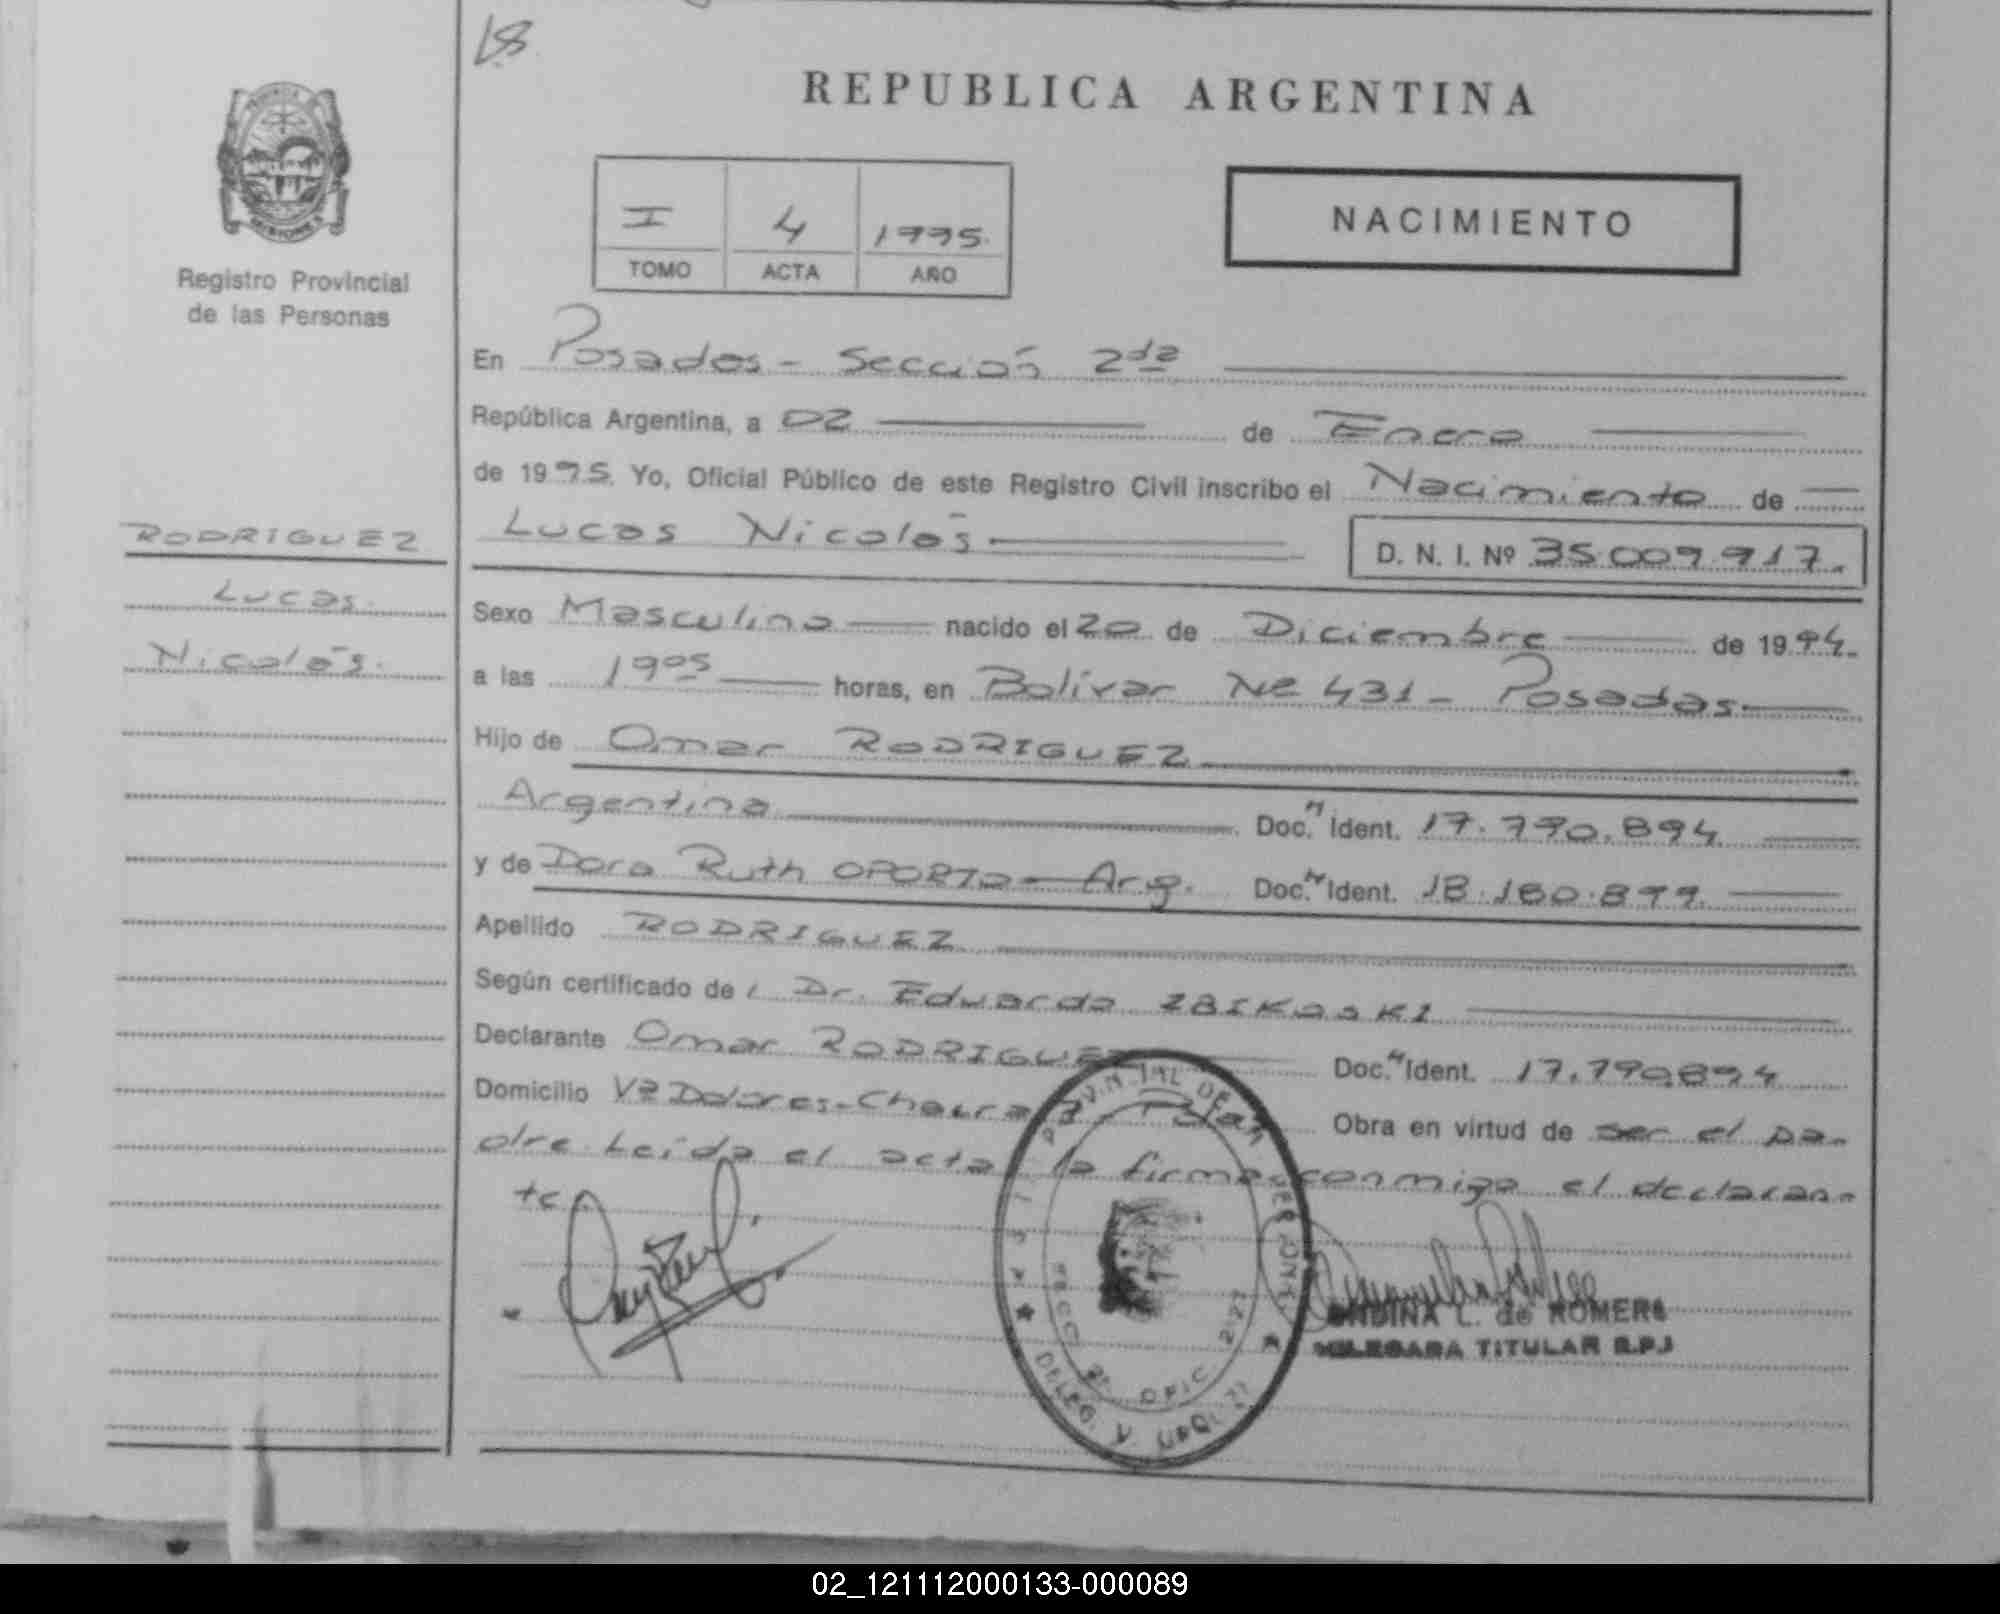 18
REPUBLICA ARGENTINA
I 4 1995.
TOMO ACTA AÑO
NACIMIENTO
Registro Provincial
de las Personas
En Posadas - Sección 2da
República Argentina, a 02 de Enero
de 1995. Yo, Oficial Público de este Registro Civil inscribo el Nacimiento de
Lucas Nicolás
D. N. I. Nº 35.009.917.
RODRIGUEZ
Lucas
Nicolás.
Sexo Masculino nacido el 20 de Diciembre de 1994.
a las 1905 horas, en Bolívar Nº 431 - Posadas
Hijo de Omar RODRIGUEZ
Argentina Doc. N Ident. 17.790.894
y de Dora Ruth OPORTO - Arg. Doc. N Ident. 18.180.899
Apellido RODRIGUEZ
Según certificado de l Dr. Eduardo ZBIKOSKI
Declarante Omar RODRIGUEZ Doc. N Ident. 17.790.894
Domicilio Vª Dolores - Obra en virtud de ser el pa-
dre. Leída el acta la firma conmigo el declaran-
te
SECC. 2ª OFIC. 277
DELEG. V. URQUIZA
L. de ROMERO
DELEGADA TITULAR R.P.
02_121112000133-000089